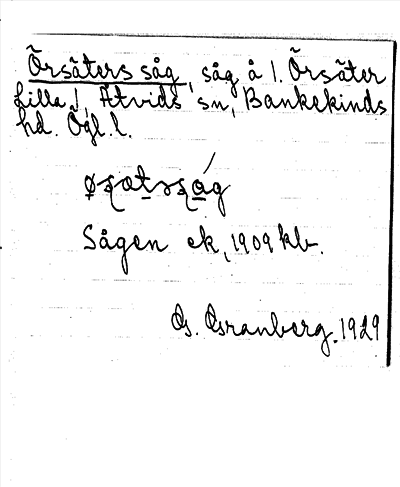 Örsäters såg, såg å l. Örsäter
lilla, Åtvids sn, Bankekinds
hd. Ögl. l.
Sågen ek, 1909 kb.
G. Granberg. 1929